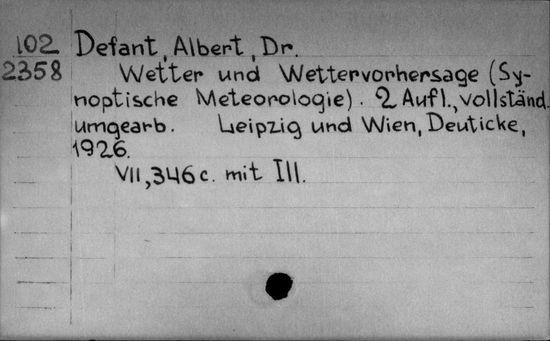 102 Defant, Albert, Dr.
2358 Wetter und Wettervorhersage (Sy-
noptische Meteorologie). 2 Aufl., vollständ.
umgearb. Leipzig und Wien, Deuticke,
1926.
VII, 346 c. mit Ill.